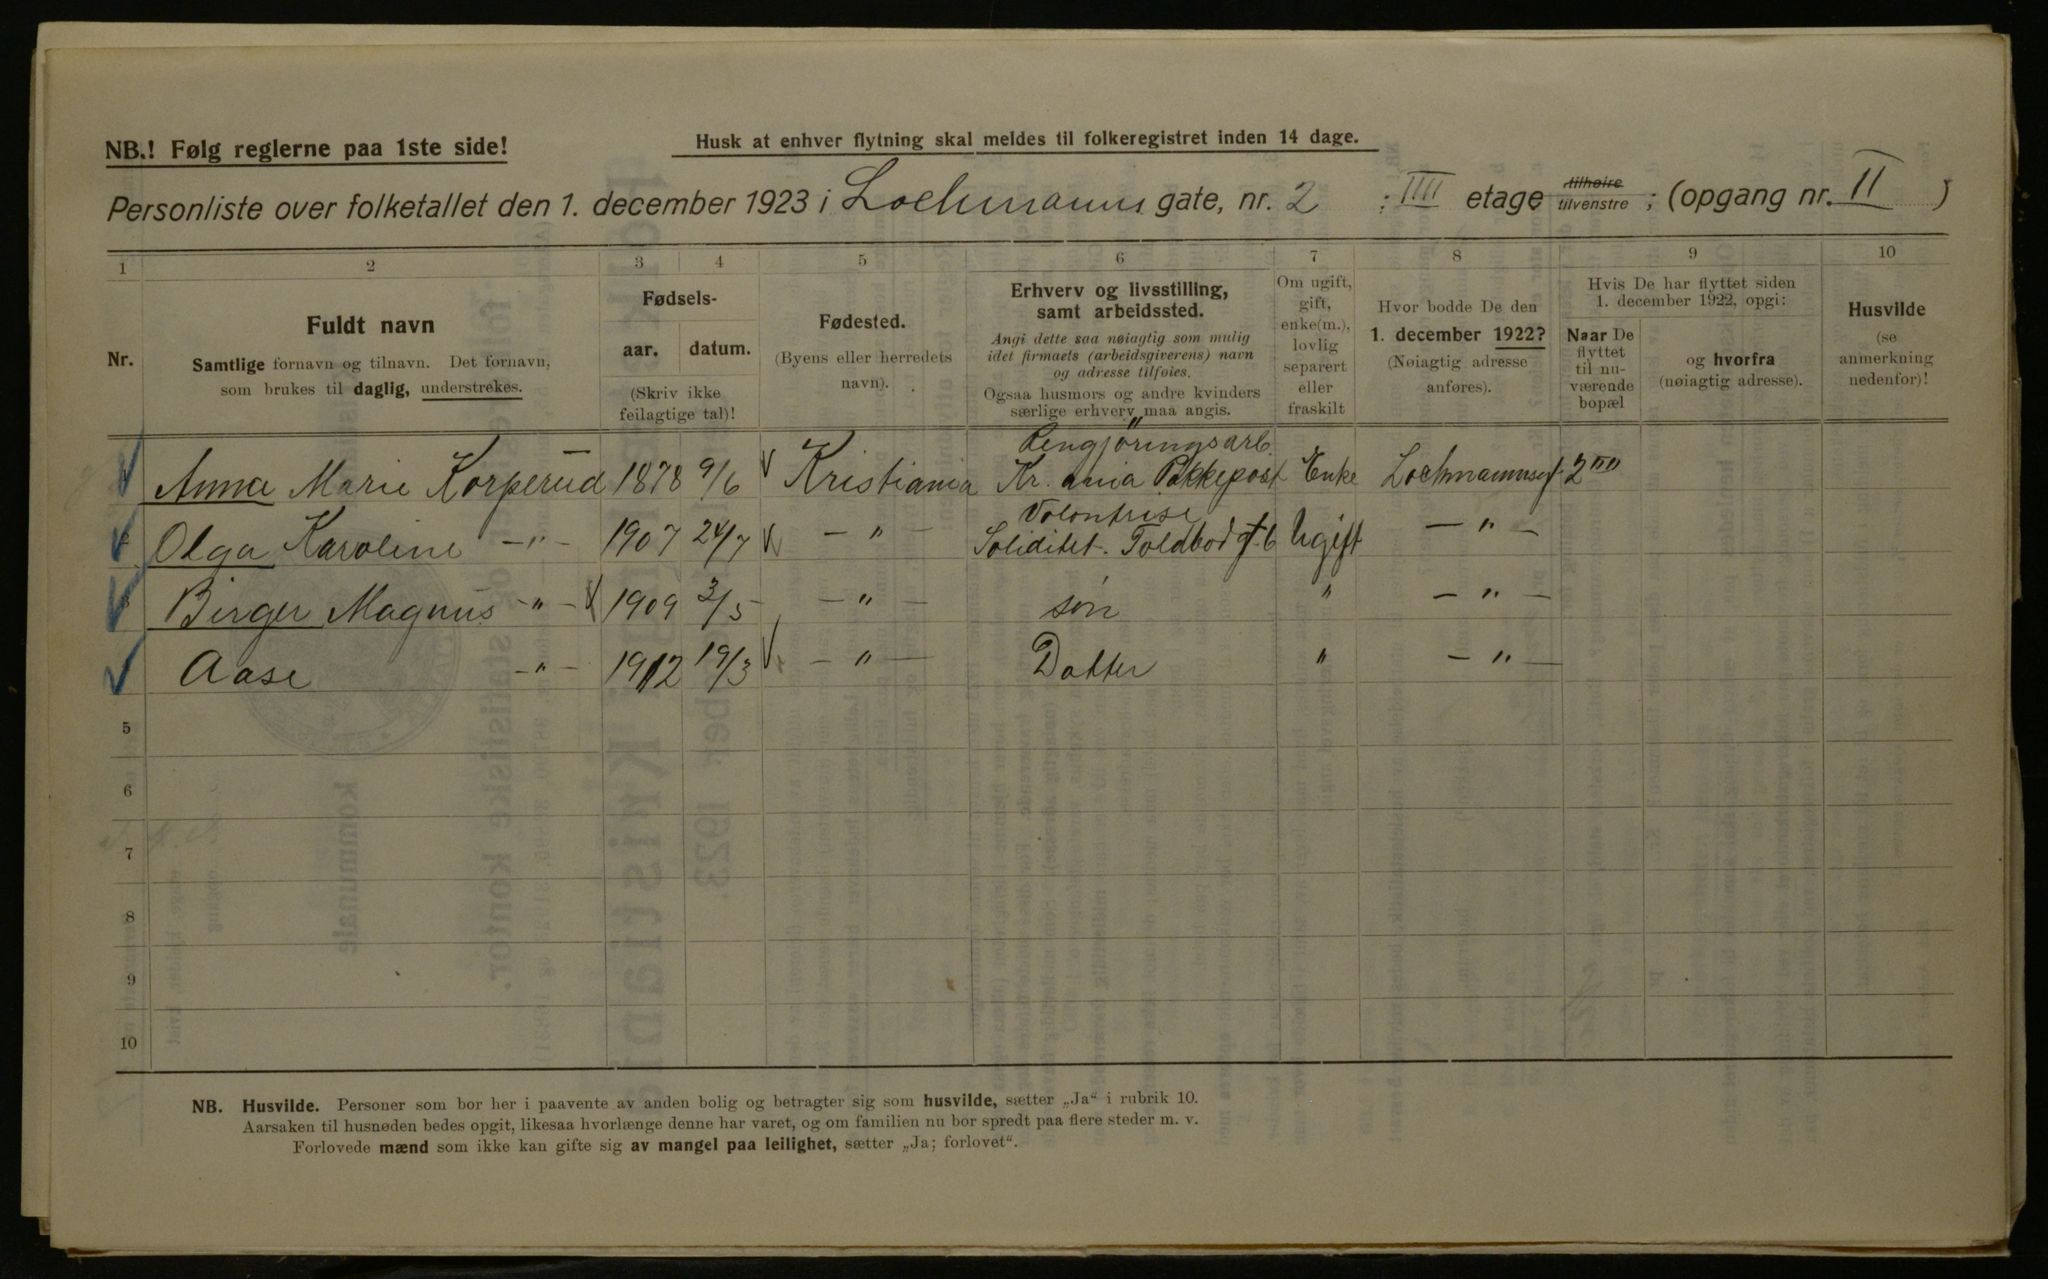 NB.! Følg reglerne paa 1ste side!
Husk at enhver flytning skal meldes til folkeregistret inden 14 dage.
Personliste over folketallet den 1. december 1923 i Lochmanns gate, nr. 2 ; IIII etage tilhøire tilvenstre ; (opgang nr. II )
1 2 3 4 5 6 7 8 9 10
Nr.
Fuldt navn
Samtlige fornavn og tilnavn. Det fornavn,
som brukes til daglig, understrekes.
Fødsels-
aar. datum.
(Skriv ikke
feilagtige tal)!
Fødested.
(Byens eller herredets
navn).
Erhverv og livsstilling,
samt arbeidssted.
Angi dette saa nøiagtig som mulig
idet firmaets (arbeidsgiverens) navn
og adresse tilføies.
Ogsaa husmors og andre kvinders
særlige erhverv maa angis.
Om ugift,
gift,
enke(m.),
lovlig
separert
eller
fraskilt
Hvor bodde De den
1. december 1922?
(Nøiagtig adresse
anføres).
Hvis De har flyttet siden
1. december 1922, opgi:
Naar De
flyttet
til nu-
værende
bopæl
og hvorfra
(nøiagtig adresse).
Husvilde
(se
anmerkning
nedenfor)!
Rengjöringsarb.
Anna Marie Korperud 1878 9/6 Kristiania Kr. ania Pakkepost Enke Lochmannsgt 2""
Volontrise
Olga Karoline -"- 1907 24/7 -"- Soliditet. Toldbodgt 6 Ugift -"-
Birger Magnus -"- 1909 3/5 -"- søn " -"-
Aase -"- 1912 19/3 -"- Datter " -"-
5
6
7
8
9
10
NB. Husvilde. Personer som bor her i paavente av anden bolig og betragter sig som husvilde, sætter „Ja“ i rubrik 10.
Aarsaken til husnøden bedes opgit, likesaa hvorlænge denne har varet, og om familien nu bor spredt paa flere steder m. v.
Forlovede mænd som ikke kan gifte sig av mangel paa leilighet, sætter „Ja; forlovet“.